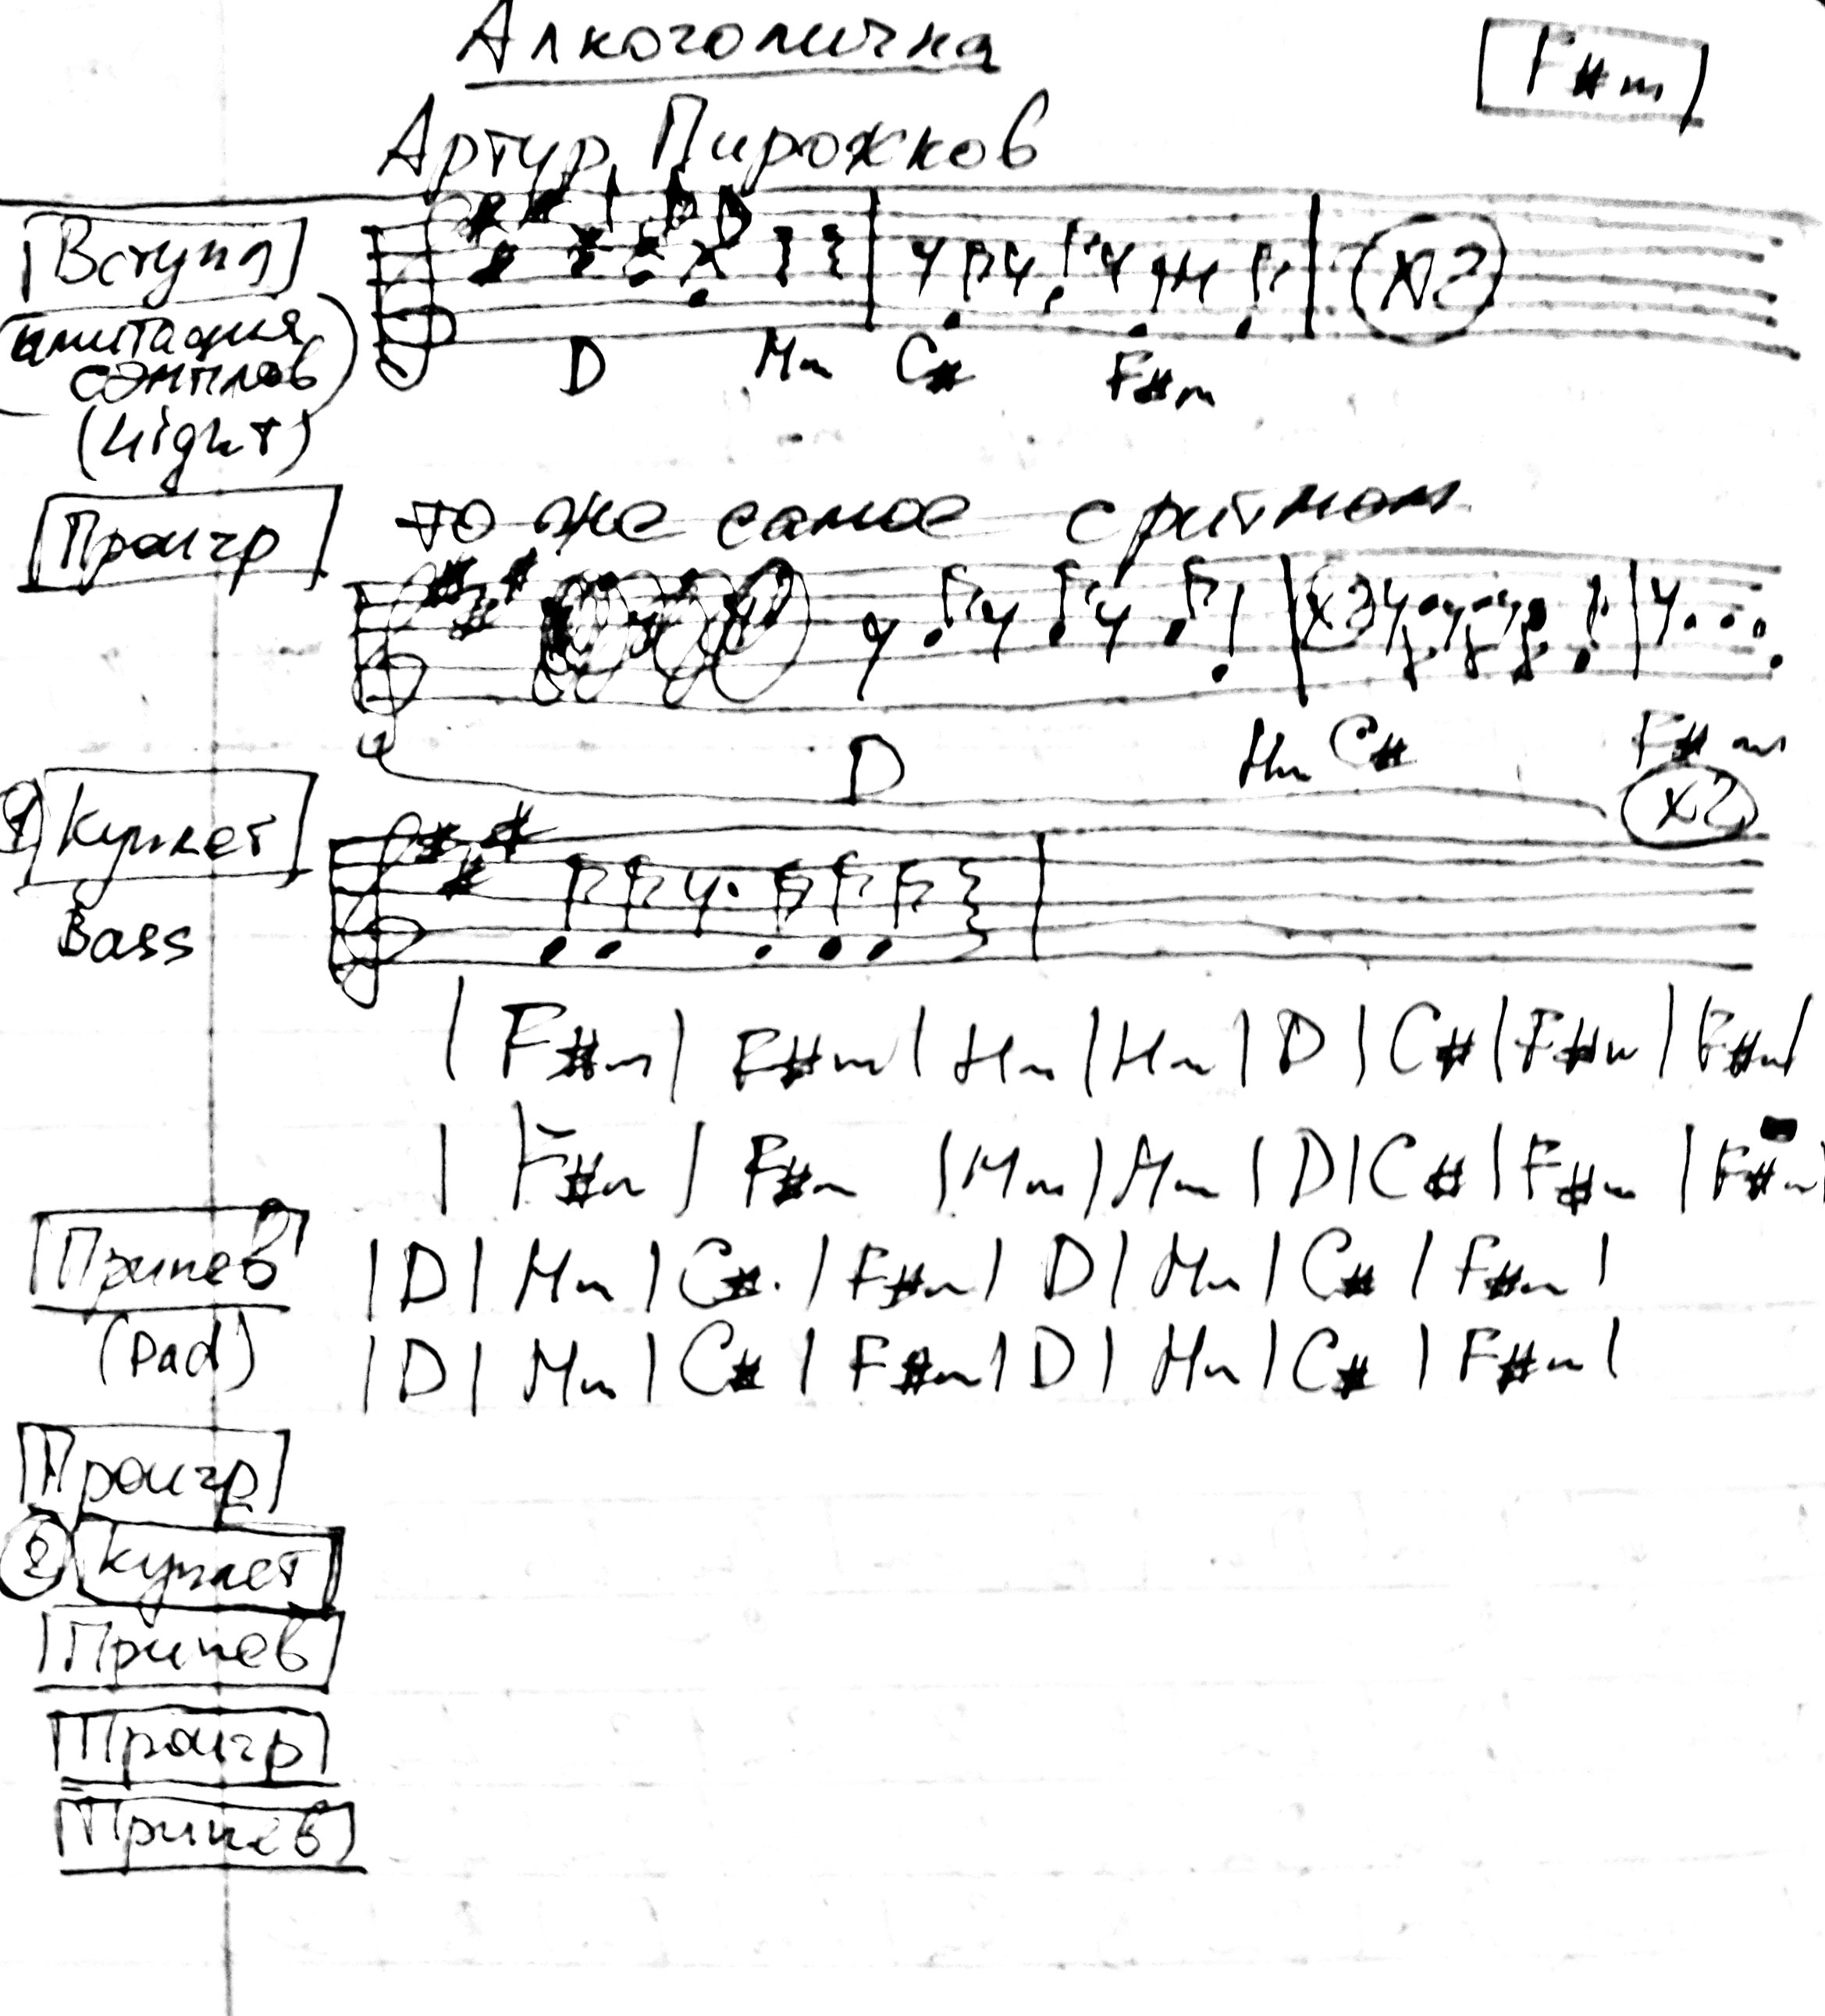 Алкоголичка
F#m
Артур Пирожков
Вступл
(имитация сэмплов)
(Light)
x2
D Hm C# F#m
Проигр
то же самое с ритмом
x3
D Hm C# F#m
x2
1 Куплет
Bass
| F#m | F#m | Hm | Hm | D | C# | F#m | F#m |
| F#m | F#m | Hm | Hm | D | C# | F#m | F#m |
Припев
| D | Hm | C# | F#m | D | Hm | C# | F#m |
(Pad)
| D | Hm | C# | F#m | D | Hm | C# | F#m |
Проигр
2 Куплет
Припев
Проигр
Припев